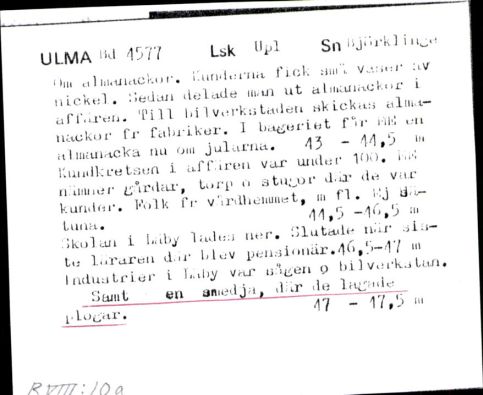 ULMA Bd 4577 Lsk Upl Sn Björklinge
Om almanackor. Kunderna fick små vaser av
nickel. Sedan delade man ut almanackor i
affären. Till bilverkstaden skickas alma-
nackor fr fabriker. I bageriet får EE en
almanacka nu om jularna. 43 - 44,5 m
Kundkretsen i affären var under 100. EE
nämner gårdar, torp o stugor där de var
kunder. Folk fr vårdhemmet, m fl. Ej
tuna. 44,5 -46,5 m
Skolan i Läby lades ner. Slutade när sis-
te läraren där blev pensionär.46,5-47 m
Industrier i Läby var sågen o bilverkstan.
Samt en smedja, där de lagade
plogar. 47 - 47,5 m
R VIII:10a